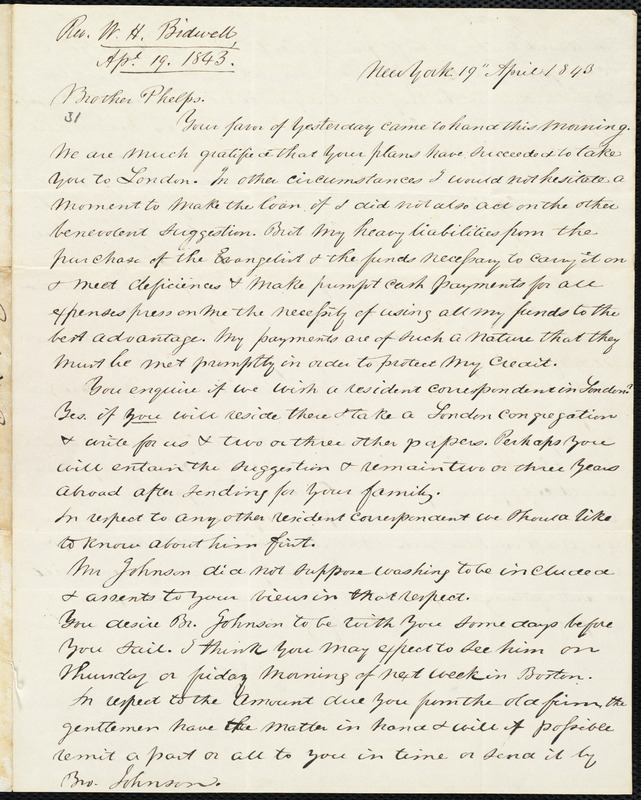 Rev. W. H. Bidwell,
Apl. 19. 1843.
New York 19" April 1843
Brother Phelps.
31
Your favor of Yesterday came to hand this morning.
We are much gratified that your plans have succeeded to take
you to London. In other circumstances I would not hesitate a
moment to make the loan, if I did not also act on the other
benevolent suggestion. But my heavy liabilities from the
purchase of the Evangelist & the funds necessary to carry it on
& meet deficiences & make prompt cash payments for all
expenses press on me the necessity of using all my funds to the
best advantage. My payments are of such a nature that they
must be met promptly in order to protect my credit.
You enquire if we wish a resident correspondent in London?
Yes. if you will reside there & take a London congregation
& write for us & two or three other papers. Perhaps you
will entertain the suggestion & remain two or three years
abroad after sending for your family.
In respect to any other resident correspondent we should like
to know about him first.
Mr Johnson did not suppose washing to be included
& assents to your views in that respect.
You desire Br. Johnson to be with you some days before
you sail. I think you may expect to see him on
Thursday or friday morning of next week in Boston.
In respect to the amount due you from the old firm, the
gentlemen have the matter in hand & will if possible
remit a part or all to you in time or send it by
Bro. Johnson.